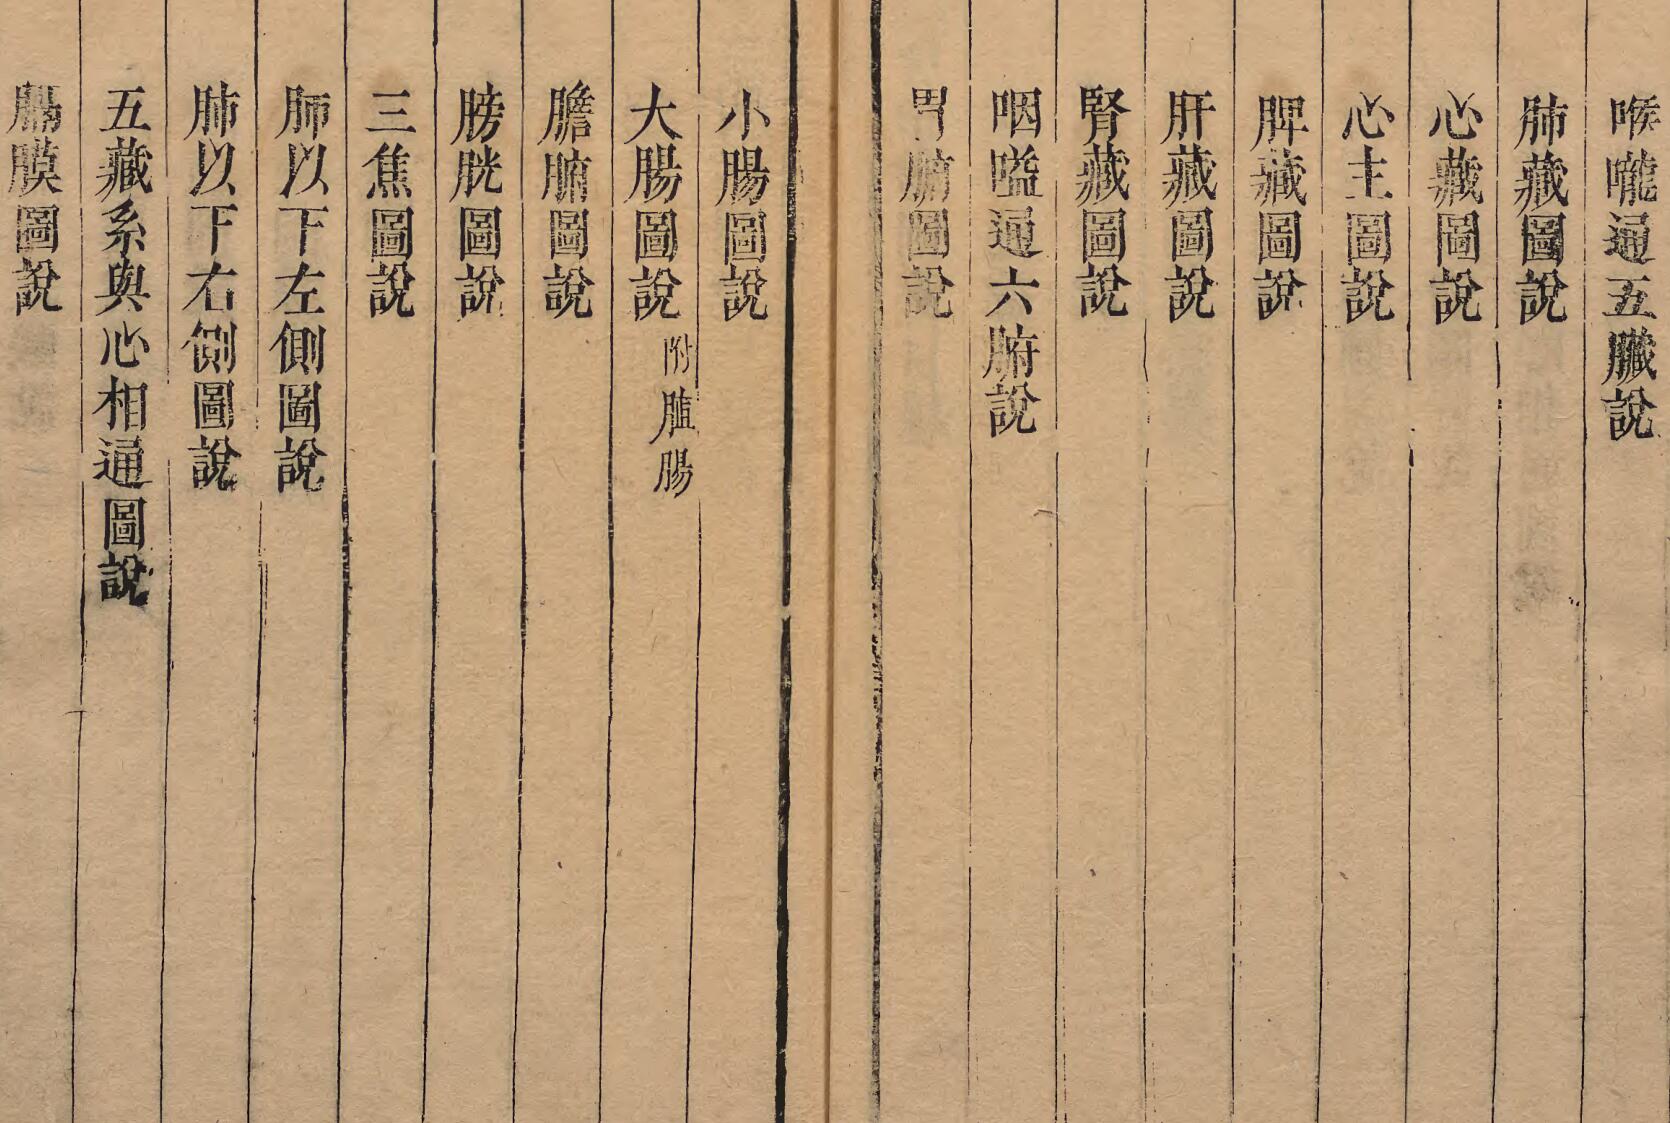 喉嚨通五臟說
肺藏圖說
心藏圖說
心主圖說
脾藏圖說
肝藏圖說
腎藏圖說
咽嗌通六腑說
胃腑圖說
小腸圖說
大腸圖說 附膻腸
膽腑圖說
膀胱圖說
三焦圖說
肺以下左側圖說
肺以下右側圖說
五藏系與心相通圖說
膈膜圖說